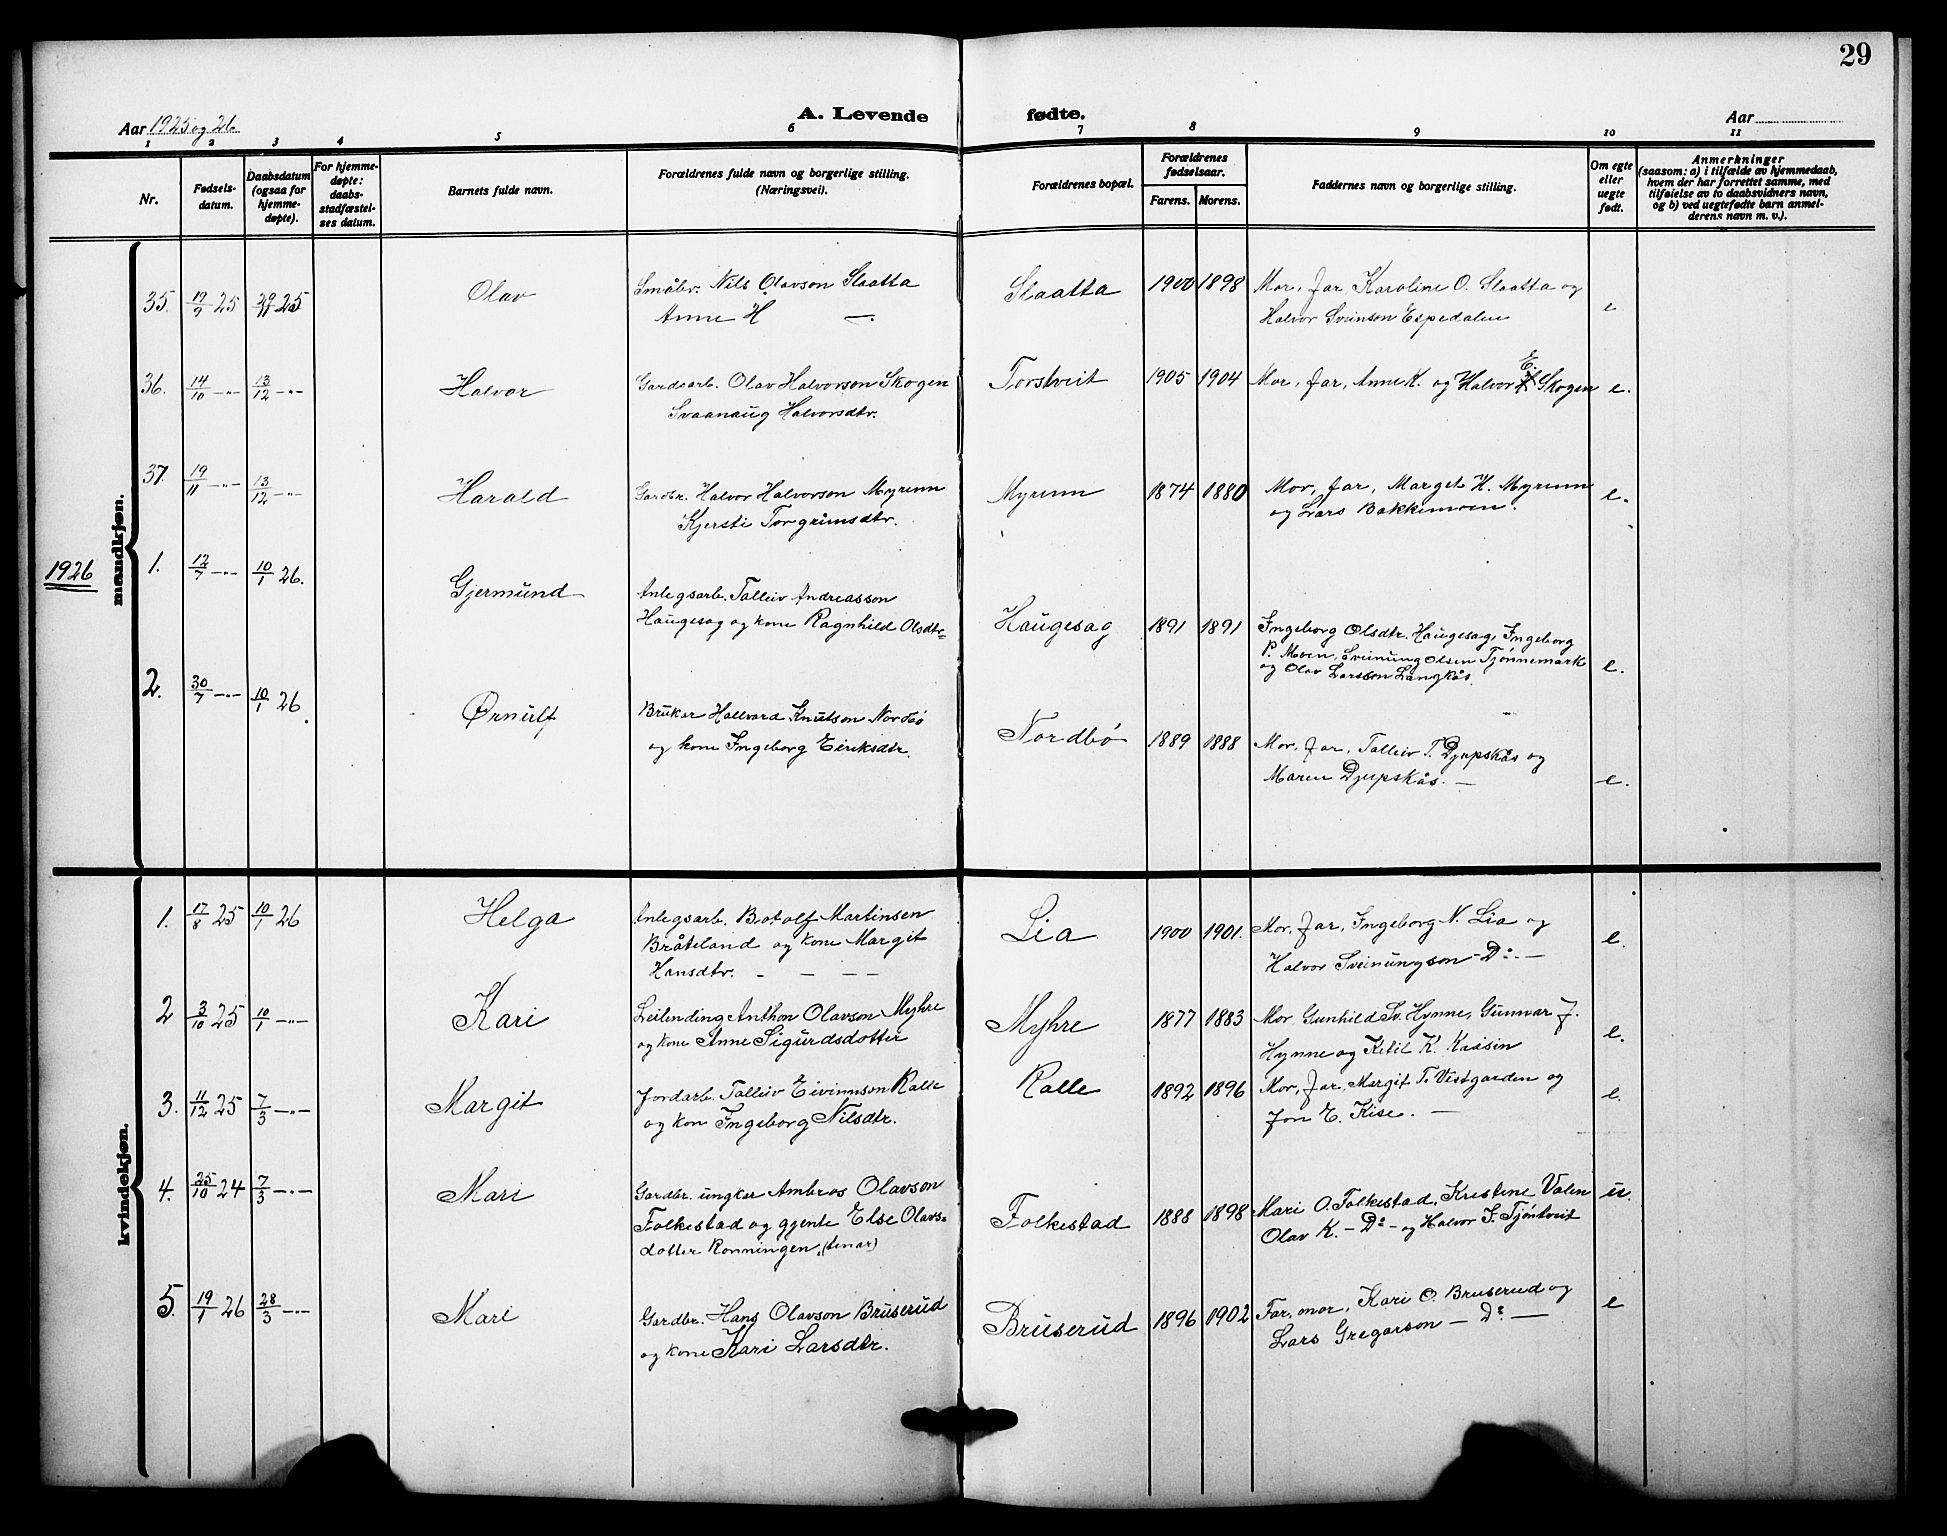 29
Aar 1925 og 26 A. Levende fødte. Aar
1 2 3 4 5 6 7 8 9 10 11
Nr. Fødsels-datum. Daabsdatum (ogsaa for hjemme-døpte). For hjemme-døpte: daabs-stadfæstel-ses datum. Barnets fulde navn. Forældrenes fulde navn og borgerlige stilling. (Næringsvei). Forældrenes bopæl. Forældrenes fødselsaar. Farens. Morens. Faddernes navn og borgerlige stilling. Om egte eller uegte født. Anmerkninger (saasom: a) i tilfælde av hjemmedaab, hvem der har forrettet samme, med tilføielse av to daabsvidners navn, og b) ved uegtefødte barn anmel-derens navn m. v.).
mandkjøn.
35. 19/9 25 29/11 25 Olav Småbr. Nils Olavson Slaatta Slaatta 1900 1898 Mor, far Karoline O. Slaatta og
Anne H — Halvor Sveinson Espedalen e
36. 14/10 -"- 13/12 -"- Halvor Gardarb. Olav Halvorson Skogen Torstveit 1905 1904 Mor, far, Anne K. og Halvor E. Skogen e.
Svaanaug Halvorsdtr.
37. 19/11 -"- 13/12 -"- Harald Gardbr. Halvor Halvorson Myrunn Myrunn 1874 1880 Mor, far, Marget H. Myrunn e.
Kjersti Torgrimsdtr. og Lars Bakkemoen.
1926
1. 12/7 -"- 10/1 26. Gjermund Anlegsarb. Talleiv Andreasson
Haugesag og kone Ragnhild Olsdtr= Haugesag 1891 1891 Ingeborg Olsdtr. Haugesag, Ingeborg
P. Moen, Sveinung Olsen Tjønnemark
og Olav Larsson Langkås. e.
2. 30/7 -"- 10/1 26. Ørnulf Bruker Hallvard Knutson Nordbø Nordbø 1889 1888 Mor, far, Talleiv T. Djupskås og
og kone Ingeborg Eiriksdtr. Maren Djupskås. — e.
kvindekjøn.
1. 17/8 25 10/1 26 Helga Anlegsarb. Botolf Martinsen Lia 1900 1901. Mor, far, Ingeborg N. Lia og
Bråteland og kone Margit Halvor Sveinungson - Do - — e.
Hansdtr. - — — —
2 3/10 25 10/1 -"- Kari Leilending Anthon Olavson Myhre Myhre 1877 1883 Mor Gunhild Sv. Hynne, Gunnar J.
og kone Anne Sigurdsdotter Hynne og Ketil K. Kaasin e.
3. 11/12 25 7/3 -"- Margit Jordarb. Talleiv Eivinnson Kalle Kalle 1892 1896 Mor, far, Margit T. Vestgarden og
og kon Ingeborg Nilsdtr. Jon E. Kise. — e.
4. 25/10 24 7/3 -"- Mari Gardbr. ungkar Ambros Olavson
Folkestad og gjente Else Olavs= Folkestad 1888 1898 Mari O. Folkestad, Kristine Valen u.
dotter Ronningen (tenar) Olav K. - Do - og Halvor J. Tjöntveit
5. 19/1 26 28/3 -"- Mari Gardbr. Hans Olavson Bruserud Bruserud 1896 1902 Far, mor, Kari O. Bruserud og e
og kone Kari Larsdtr. Lars Gregarson — Do —